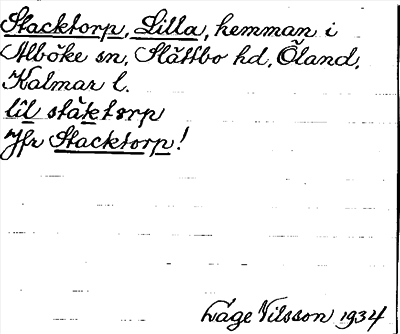 Stacktorp, Lilla, hemman i
Alböke sn, Slättbo hd, Öland,
Kalmar l.
lìl stàktorp
Jfr Stacktorp!
Låge Nilsson 1934